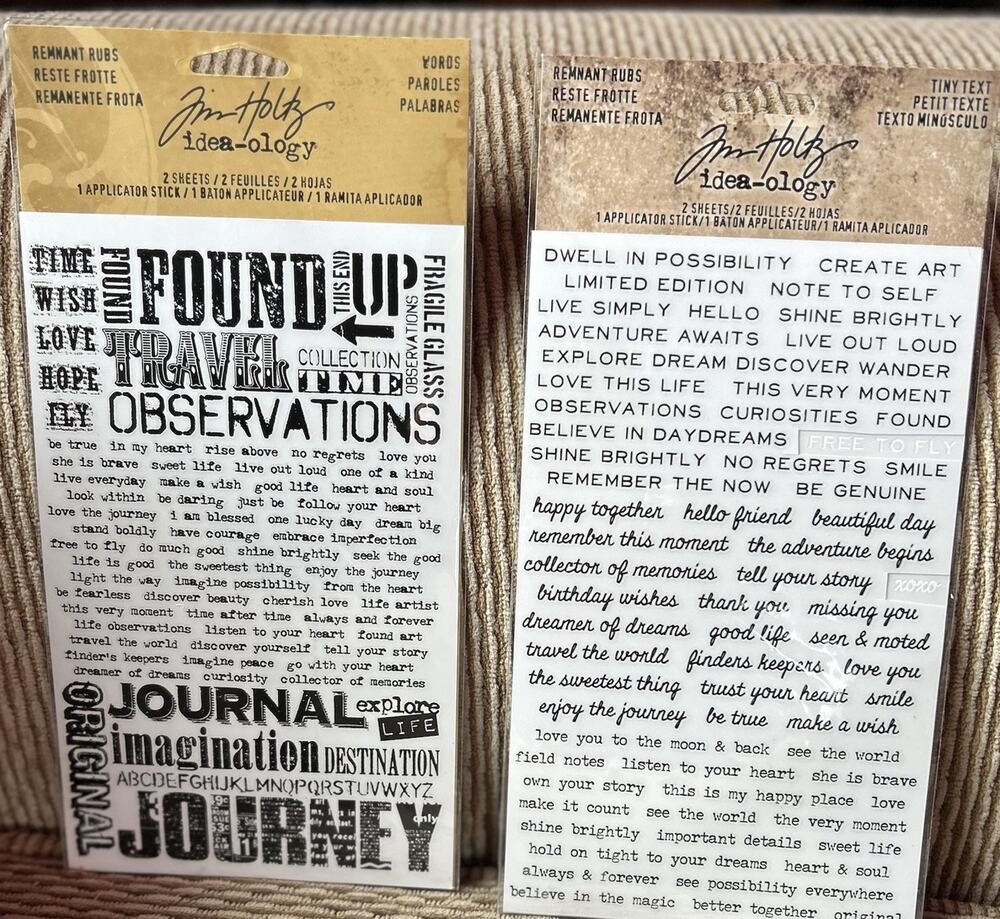 REMNANT RUBS
RESTE FROTTE
REMANENTE FROTA
WORDS
PAROLES
PALABRAS
Tim Holtz
idea-ology
2 SHEETS / 2 FEUILLES / 2 HOJAS
1 APPLICATOR STICK / 1 BÂTON APPLICATEUR / 1 RAMITA APLICADOR
TIME
WISH
LOVE
HOPE
FLY
FOUND
FOUND
THIS END
UP
FRAGILE GLASS
TRAVEL
COLLECTION
TIME
OBSERVATIONS
OBSERVATIONS
be true in my heart rise above no regrets love you
she is brave sweet life live out loud one of a kind
live everyday make a wish good life heart and soul
look within be daring just be follow your heart
love the journey i am blessed one lucky day dream big
stand boldly have courage embrace imperfection
free to fly do much good shine brightly seek the good
life is good the sweetest thing enjoy the journey
light the way imagine possibility from the heart
be fearless discover beauty cherish love life artist
this very moment time after time always and forever
life observations listen to your heart found art
travel the world discover yourself tell your story
finder's keepers imagine peace go with your heart
dreamer of dreams curiosity collector of memories
ORIGINAL
JOURNAL explore
LIFE
imagination DESTINATION
ABCDEFGHIJKLMNOPQRSTUVWXYZ
JOURNEY
only
REMNANT RUBS
RESTE FROTTE
REMANENTE FROTA
TINY TEXT
PETIT TEXTE
TEXTO MINÚSCULO
Tim Holtz
idea-ology
2 SHEETS/2 FEUILLES/2 HOJAS
1 APPLICATOR STICK/1 BÂTON APPLICATEUR/1 RAMITA APLICADOR
DWELL IN POSSIBILITY CREATE ART
LIMITED EDITION NOTE TO SELF
LIVE SIMPLY HELLO SHINE BRIGHTLY
ADVENTURE AWAITS LIVE OUT LOUD
EXPLORE DREAM DISCOVER WANDER
LOVE THIS LIFE THIS VERY MOMENT
OBSERVATIONS CURIOSITIES FOUND
BELIEVE IN DAYDREAMS FREE TO FLY
SHINE BRIGHTLY NO REGRETS SMILE
REMEMBER THE NOW BE GENUINE
happy together hello friend beautiful day
remember this moment the adventure begins
collector of memories tell your story xoxo
birthday wishes thank you missing you
dreamer of dreams good life seen & noted
travel the world finders keepers love you
the sweetest thing trust your heart smile
enjoy the journey be true make a wish
love you to the moon & back see the world
field notes listen to your heart she is brave
own your story this is my happy place love
make it count see the world the very moment
shine brightly important details sweet life
hold on tight to your dreams heart & soul
always & forever see possibility everywhere
believe in the magic better together original